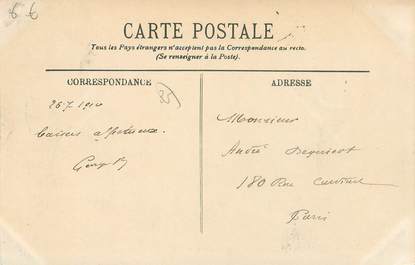 6 €
CARTE POSTALE
Tous les Pays étrangers n'acceptent pas la Correspondance au recto.
(Se renseigner à la Poste).
CORRESPONDANCE
ADRESSE
35
26.7.1910
Baisers affectueux.
Monsieur
André
180 Rue
Paris